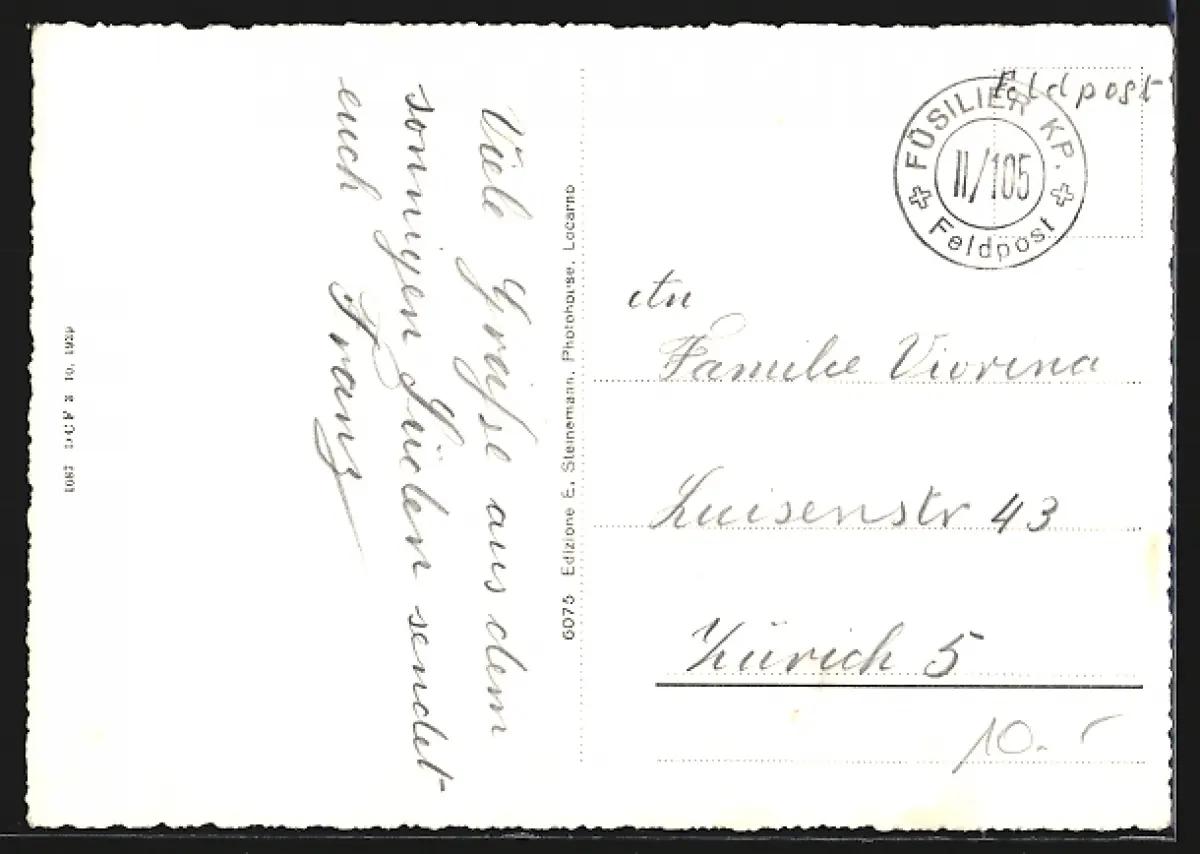 Viele Grüsse aus dem
sonnigen Süden sendet
euch Franz
6075 Edizione E. Steinemann, Photohouse, Locarno
Feldpost
FÜSILIER KP.
II/105
Feldpost
An
Familie Viorina
Luisenstr 43
Zürich 5
10.-